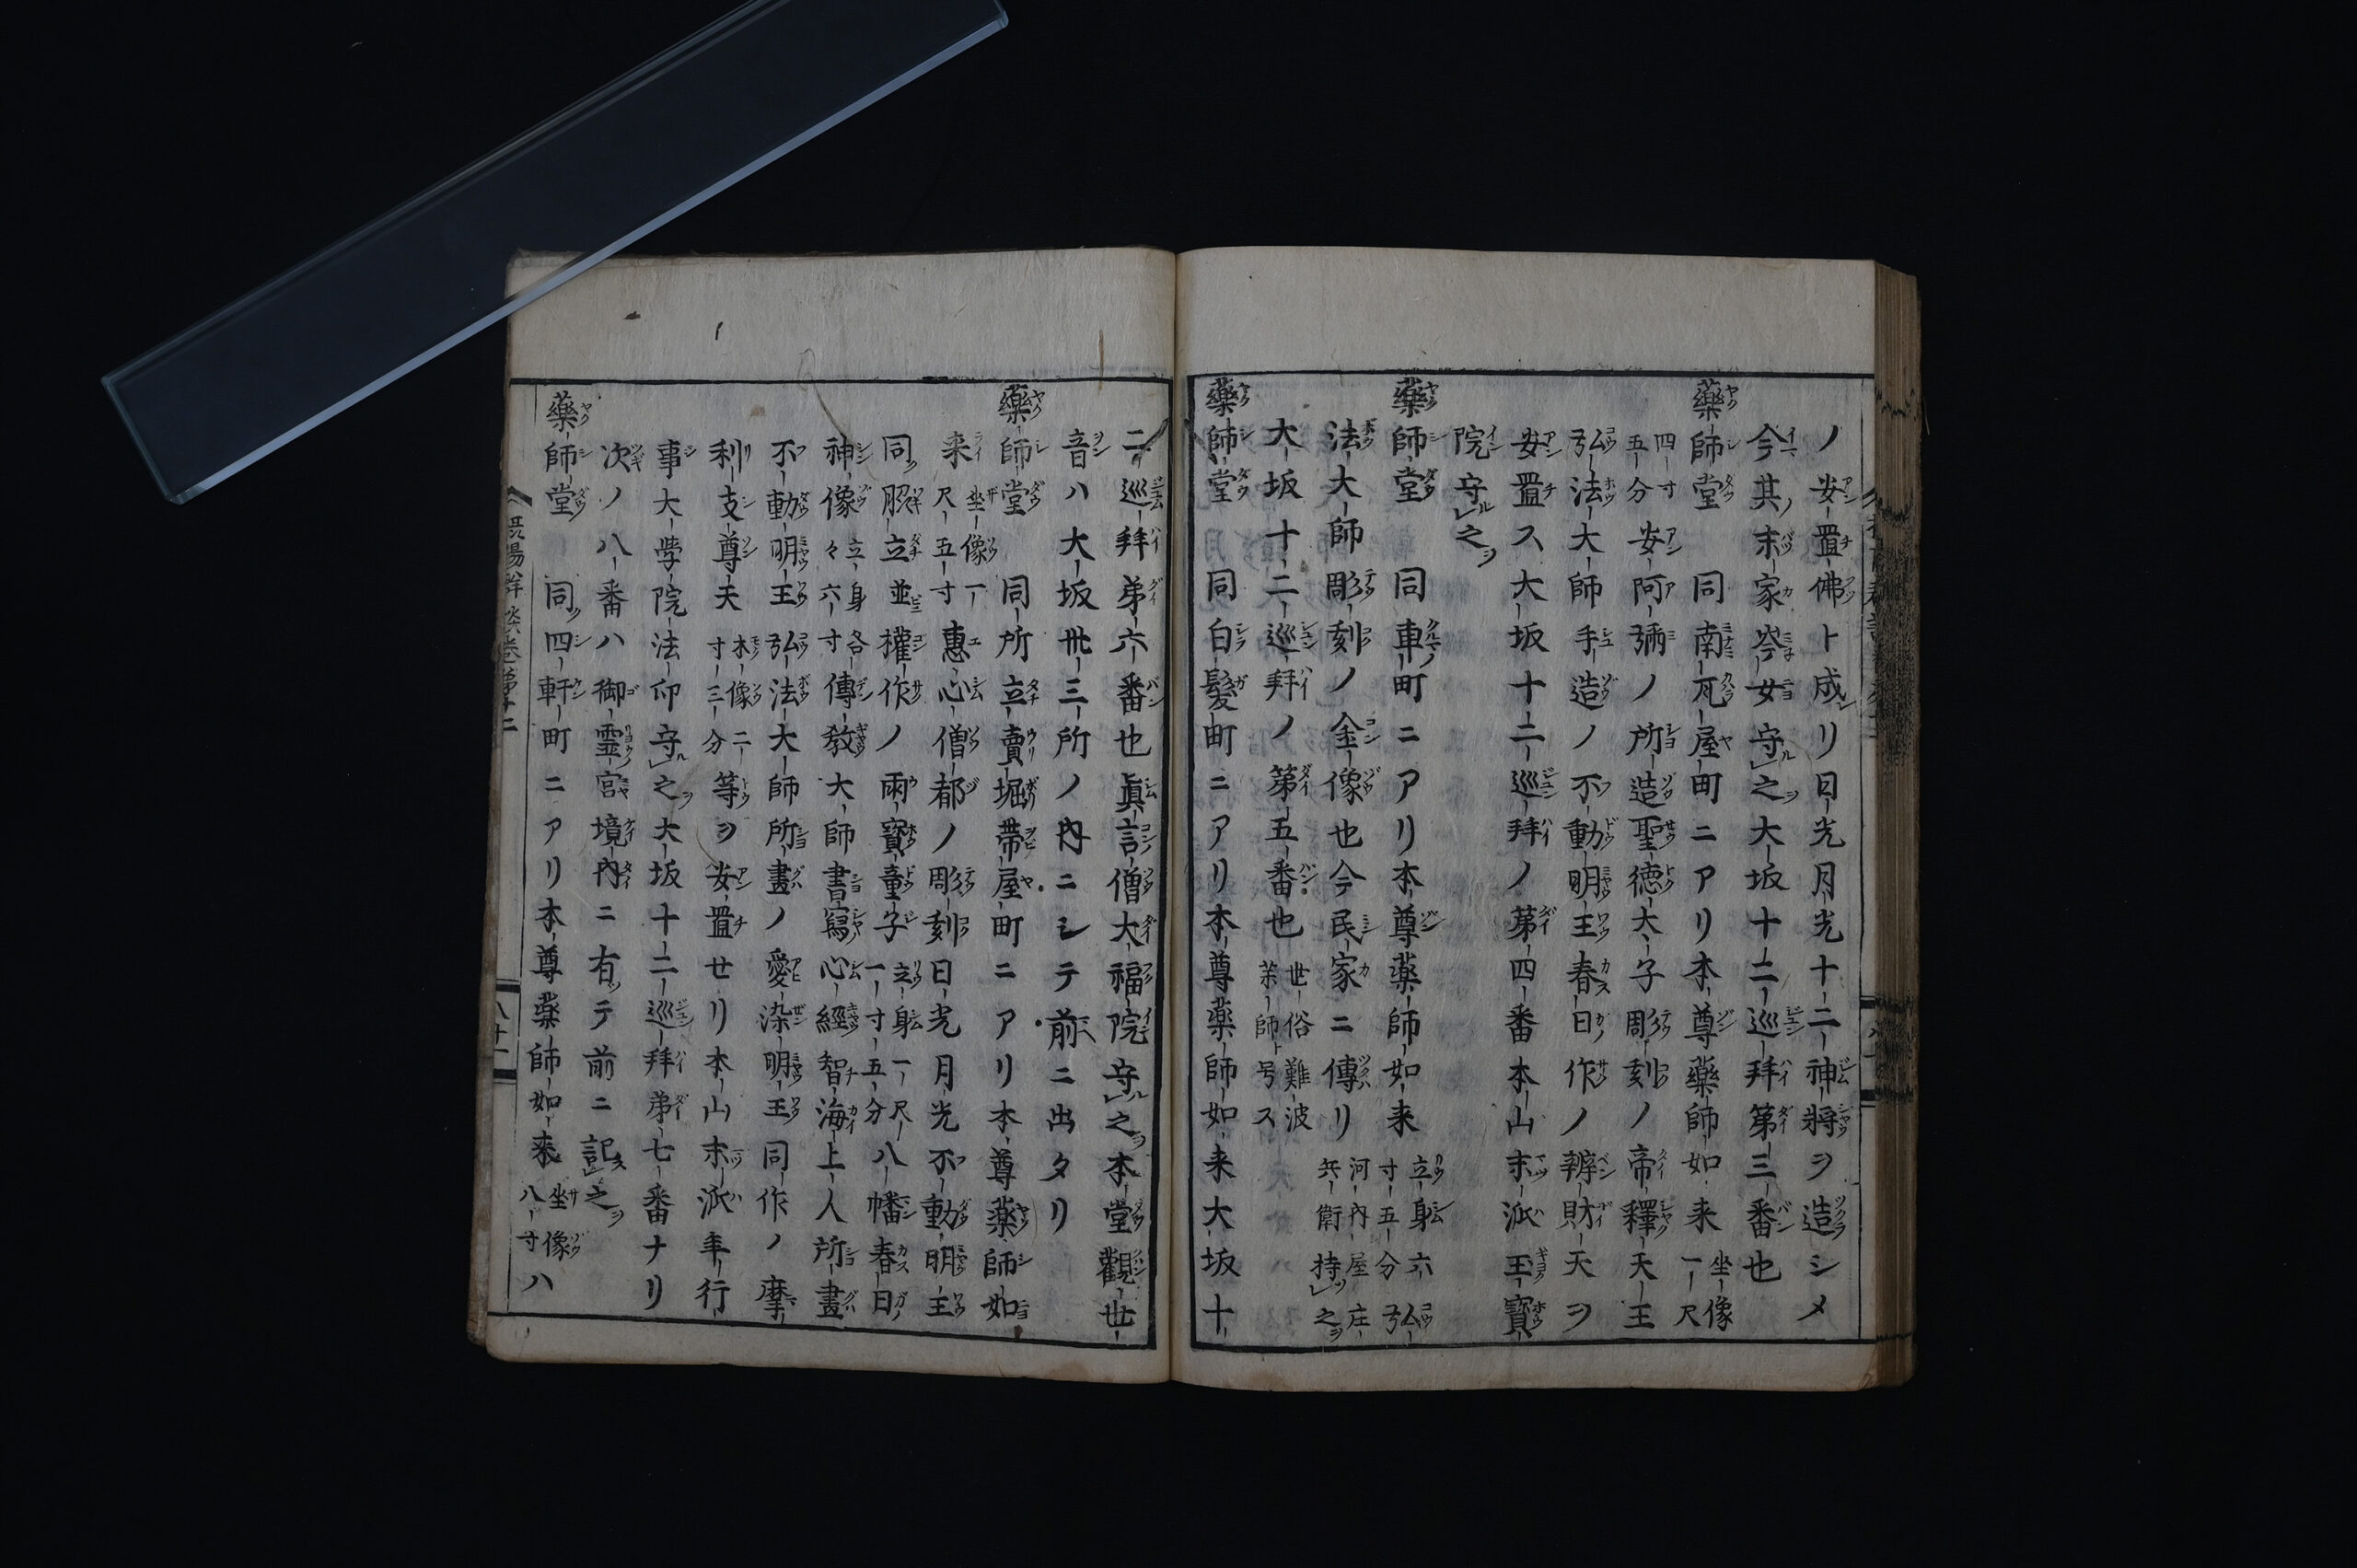 ノ安置佛ト成リ日光月光十二神將ヲ造シメ
今其末家岺女守之大坂十二巡拜第三番也
藥師堂 同南瓦屋町ニアリ本尊藥師如来坐像一尺
四寸五分安阿彌ノ所造聖徳大子彫刻ノ帝釋天王
弘法大師手造ノ不動明王春日作ノ辨財天ヲ
安置ス大坂十二巡拜ノ第四番本山末派玉寶
院守之
藥師堂 同車町ニアリ本尊藥師如来立身六寸五分弘
法大師彫刻ノ金像也今民家ニ傳リ河内屋庄兵衛持之
大坂十二巡拜ノ第五番也世俗難波茶師ト号ス
藥師堂 同白髮町ニアリ本尊藥師如来大坂十
二巡拜第六番也眞言僧大福院守之本堂觀世
音ハ大坂卅三所ノ内ニシテ前ニ出タリ
藥師堂 同所立賣堀帯屋町ニアリ本尊藥師如
来坐像一尺五寸惠心僧都ノ彫刻日光月光不動明王
同脇立並權作ノ雨寶童子立身一尺一寸五分八幡春日
神像立身各々六寸傳教大師書寫心經智海上人所畫
不動明王弘法大師所畫ノ愛染明王同作ノ摩
利支尊天木像二寸三分等ヲ安置セリ本山末派年行
事大学院法印守之大坂十二巡拜第七番ナリ
次ノ八番ハ御霊宮境内ニ有テ前ニ記之
藥師堂 同四軒町ニアリ本尊薬師如来坐像八寸ハ
摂陽群談巻第十二
八十一